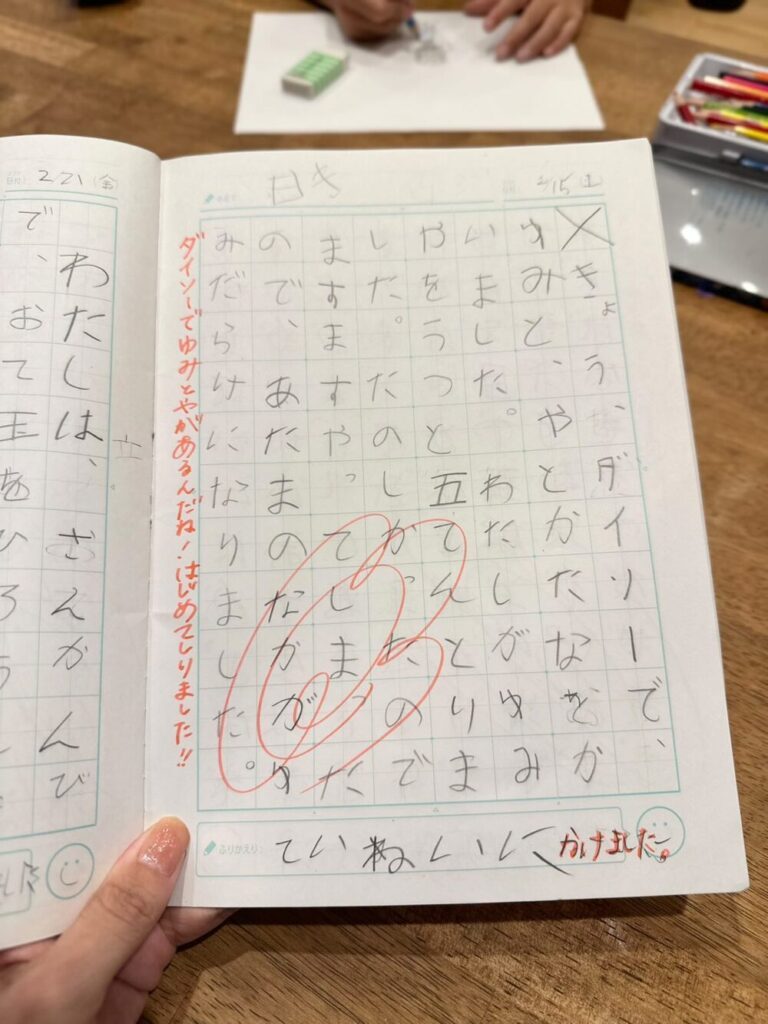 日き
2/15（土）
きょう、ダイソーで、
ゆみと、やとかたなをか
いました。わたしがゆみ
やをうつと五てんとりま
した。たのしかったので
ますますやってしまった
ので、あたまのなかがゆ
みだらけになりました。
ダイソーでゆみとやがあるんだね！はじめてしりました!!
ふりかえり
ていねいに かけました。
2/21（金）
わたしは、さんかんび
で、おて玉をひろ